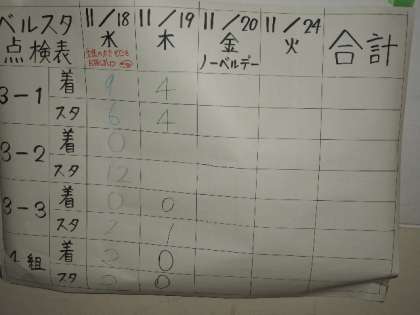 ベルスタ点検表 11/18 水 11/19 木 11/20 金 ノーベルデー 11/24 火 合計
3-1 着 9 4
スタ 6 4
3-2 着 0
スタ 12
3-3 着 0 0
スタ 2 1
1組 着 0
スタ 0 0